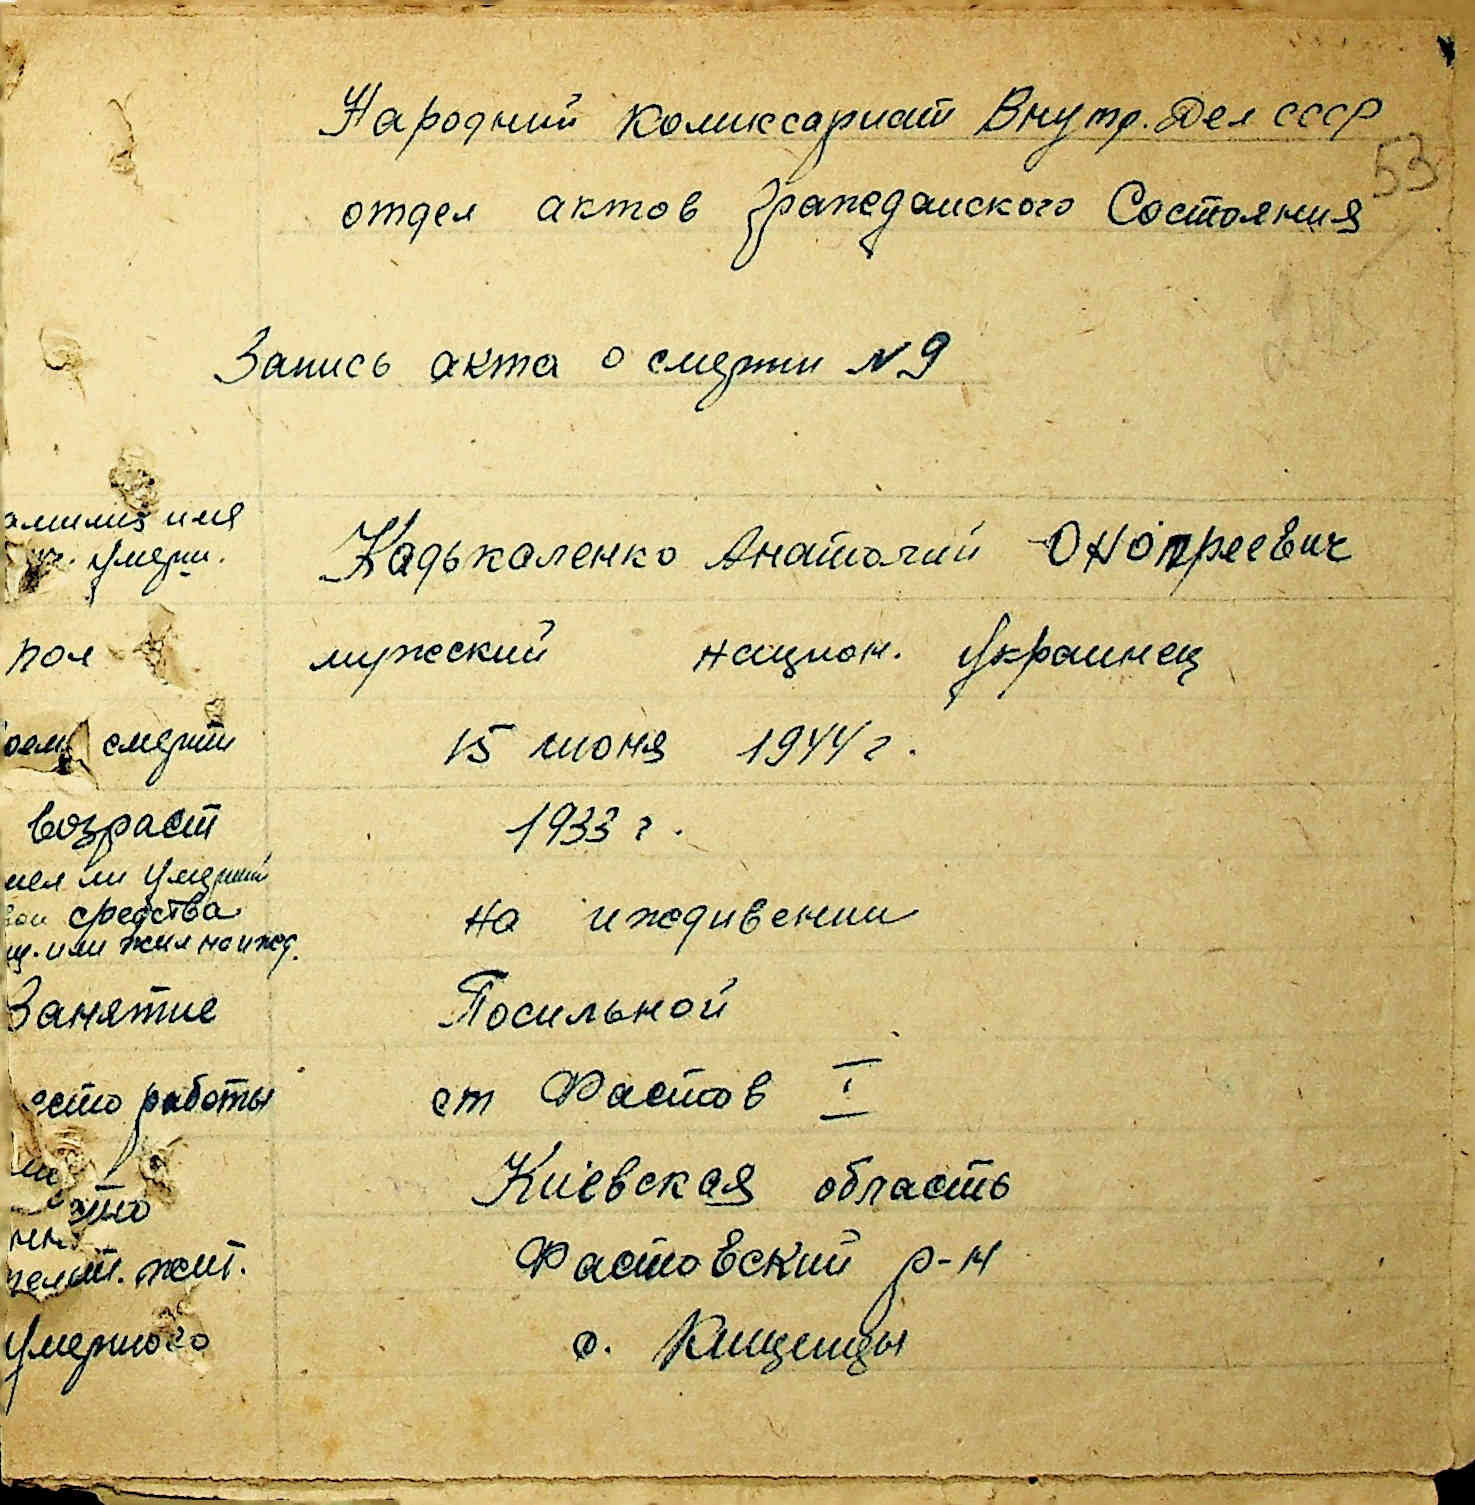 Народний комиссариат Внутр. Дел СССР
53
отдел актов гражданского Состояния
Запись акта о смерти N 9
амилия имя
умерш.
Кадькаленко Анатолий Онопреевич
пол мужский национ. Украинец
смерти 15 июня 1944 г.
возраст 1933 г.
мел ли умерший
средства
на иждивении
или жил на ижд.
Занятие Посильной
есто работы ст Фастов I
Киевская область
Фастовский р-н
жит.
умершого с. Кищенцы